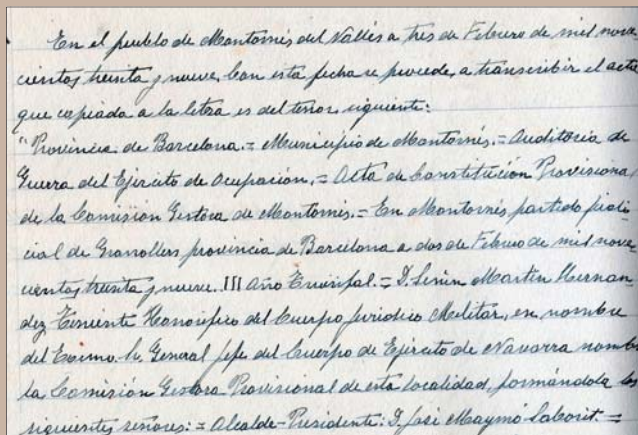 En el pueblo de Montornés del Vallés a tres de Febrero de mil nove-
cientos treinta y nueve. Con esta fecha se procede a transcribir el acta
que copiada a la letra es del tenor siguiente:
"Provincia de Barcelona.= Municipio de Montornés.= Auditoria de
Guerra del Ejercito de Ocupación.= Acta de Constitución Provisional
de la Comisión Gestora de Montornés.= En Montornés partido judi-
cial de Granollers provincia de Barcelona a dos de Febrero de mil nove-
cientos treinta y nueve. III Año Triunfal.= D. Martin Hernan-
dez Teniente Honorifico del Cuerpo Juridico Militar, en nombre
del Excmo. Sr. General Jefe del Cuerpo de Ejército de Navarra nombra
la Comisión Gestora Provisional de esta localidad, formándola los
siguientes señores:= Alcalde-Presidente: D. José Maymó Laborit.=